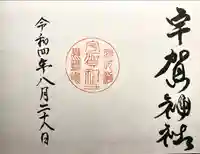 宇賀神社
令和四年八月二十八日